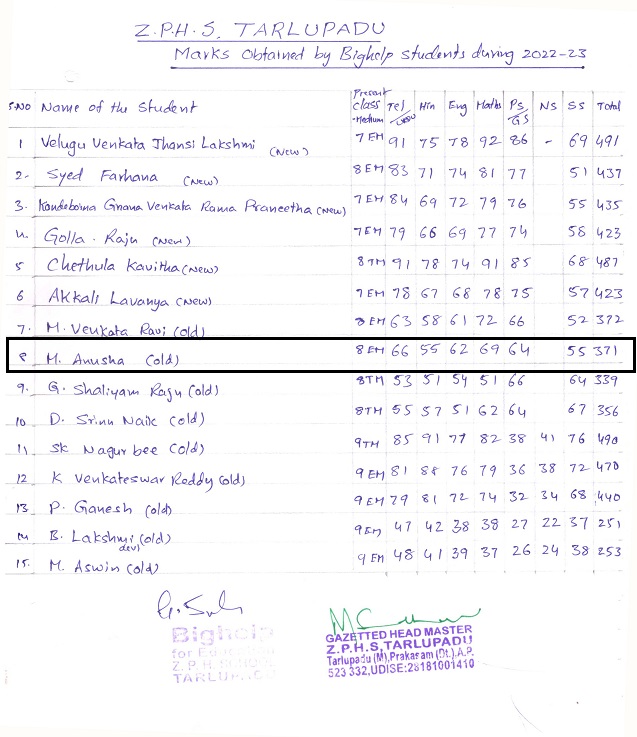 Z.P.H.S. TARLUPADU
Marks Obtained by Bighelp students during 2022-23
S.NO Name of the Student Present class Medium Tel Hin Eng Maths Ps/GS NS SS Total
1 Velugu Venkata Jhansi Lakshmi (New) 7 EM 91 75 78 92 86 - 69 491
2- Syed Farhana (New) 8 EM 83 71 74 81 77 51 437
3. Kandeboina Gnana Venkata Rama Praneetha (New) 7 EM 84 69 72 79 76 55 435
4. Golla. Raju (New) 7 EM 79 66 69 77 74 58 423
5 Chethula Kavitha (New) 8 TM 91 78 74 91 85 68 487
6 Akkali Lavanya (New) 7 EM 78 67 68 78 75 57 423
7. M. Venkata Ravi (old) 8 EM 63 58 61 72 66 52 372
8 M. Anusha (old) 8 EM 66 55 62 69 64 55 371
9. G. Shaliyam Raju (old) 8TM 53 51 54 51 66 64 339
10 D. Srinu Naik (old) 8TM 55 57 51 62 64 67 356
11 SK Nagur bee (old) 9TM 85 91 77 82 38 41 76 490
12 K Venkateswar Reddy (old) 9 EM 81 88 76 79 36 38 72 470
13 P. Ganesh (old) 9 EM 79 81 72 74 32 34 68 440
14 B. Lakshmi devi (old) 9 EM 47 42 38 38 27 22 37 251
15. M. Aswin (old) 9 EM 48 41 39 37 26 24 38 253
Bighelp
for Education
Z.P.H.
TARLUPADU
GAZETTED HEAD MASTER
Z.P.H.S, TARLUPADU
Tarlupadu (M), Prakasam (Dt.). A.P.
523 332, UDISE: 28181001410